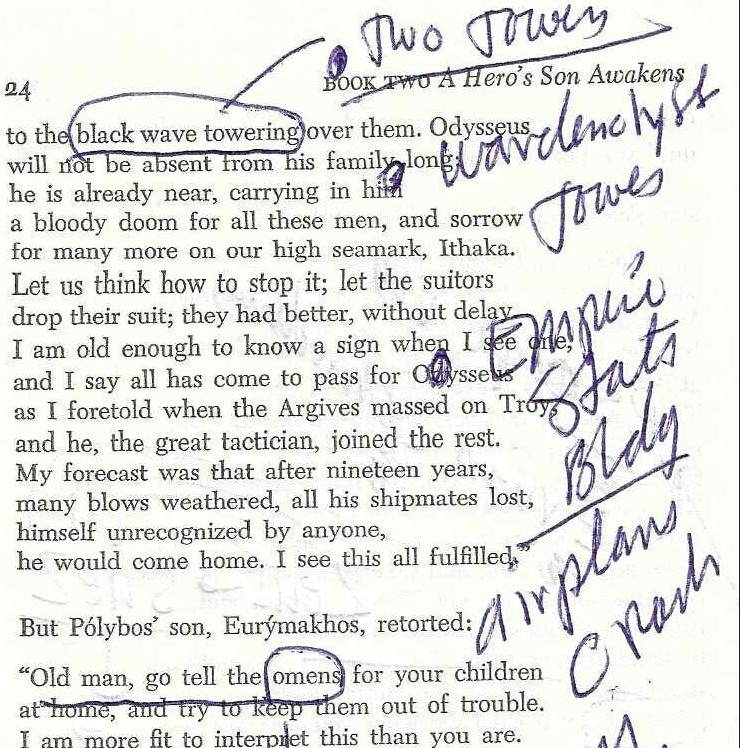 Two Towers
24
BOOK TWO A Hero's Son Awakens
to the black wave towering over them. Odysseus
will not be absent from his family long;
he is already near, carrying in him
a bloody doom for all these men, and sorrow
for many more on our high seamark, Ithaka.
Let us think how to stop it; let the suitors
drop their suit; they had better, without delay.
I am old enough to know a sign when I see one,
and I say all has come to pass for Odysseus
as I foretold when the Argives massed on Troy,
and he, the great tactician, joined the rest.
My forecast was that after nineteen years,
many blows weathered, all his shipmates lost,
himself unrecognized by anyone,
he would come home. I see this all fulfilled.”
But Pólybos’ son, Eurýmakhos, retorted:
“Old man, go tell the omens for your children
at home, and try to keep them out of trouble.
I am more fit to interpret this than you are.
Towes
Empire
Stats
Bldg
airplans
Crash